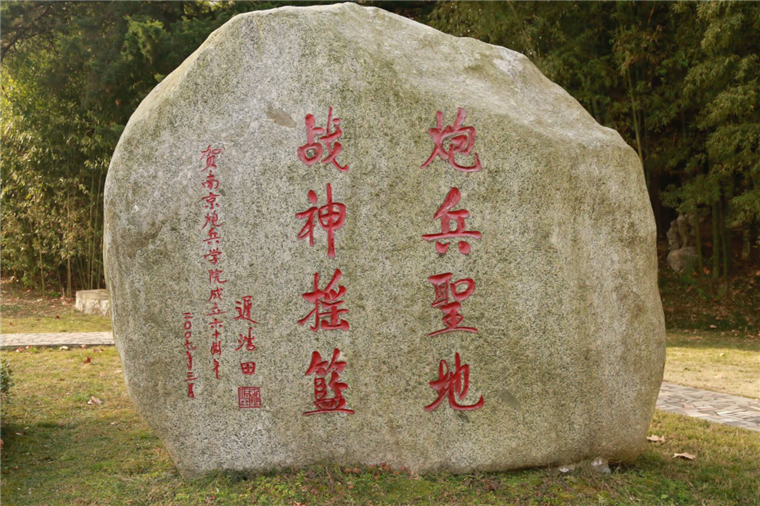 炮兵聖地
战神摇籃
贺南京炮兵学院成立六十周年
迟浩田
二〇〇九年三月